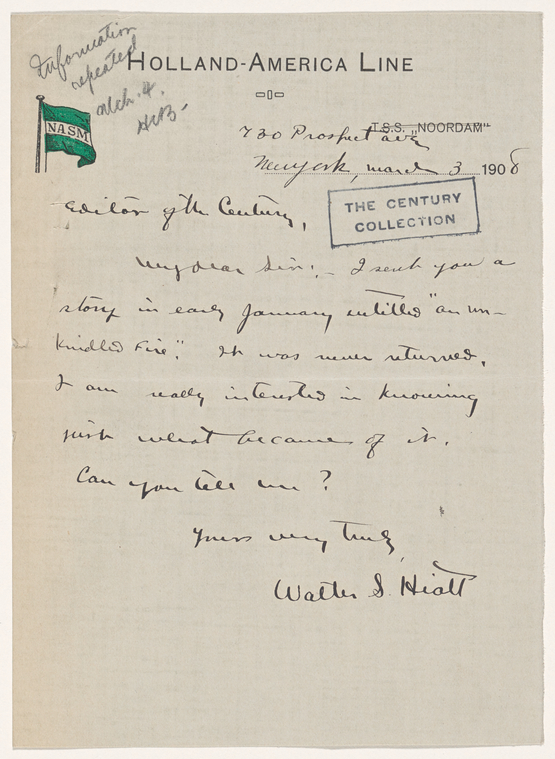 Information
repeated
Mch. 4.
HOLLAND-AMERICA LINE
NASM
T.S.S. "NOORDAM"
730 Prospect ave
New York, march 3 1908
THE CENTURY
COLLECTION
Editor of the Century,
My dear Sir:- I sent you a
story in early January entitled "an un-
kindled Fire". It was never returned.
I am really interested in knowing
just what became of it.
Can you tell me?
Yours very truly,
Walter S. Hiatt